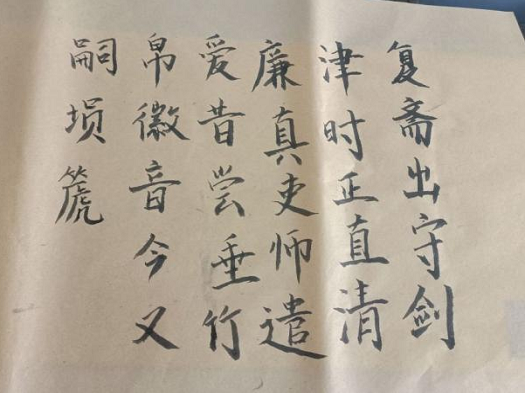 复斋出守剑
津时正直清
廉真吏师遣
爱昔尝垂竹
帛徽音今又
嗣埙篪